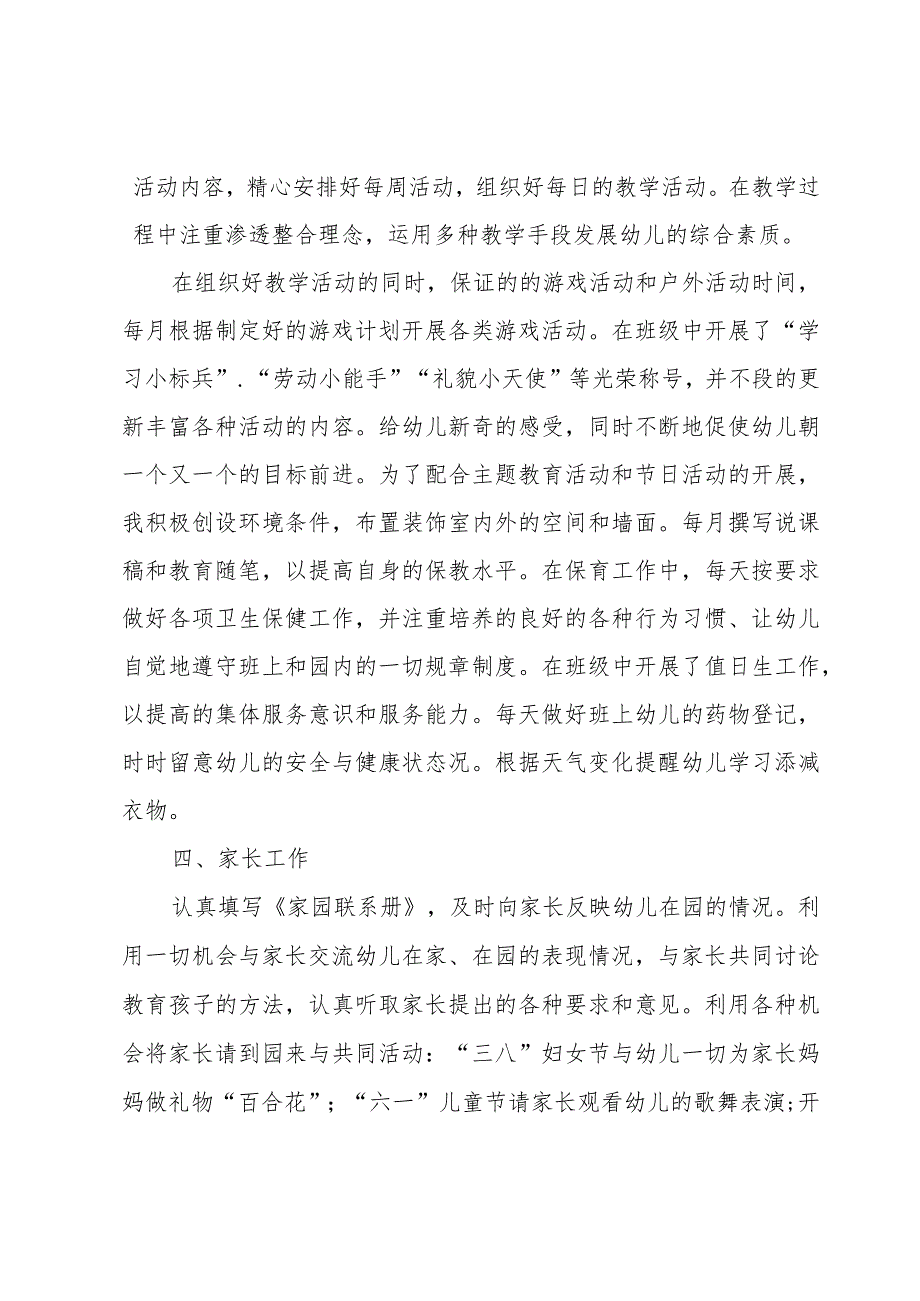 活动内容，精心安排好每周活动，组织好每日的教学活动。在教学过
程中注重渗透整合理念，运用多种教学手段发展幼儿的综合素质。
在组织好教学活动的同时，保证的的游戏活动和户外活动时间，
每月根据制定好的游戏计划开展各类游戏活动。在班级中开展了“学
习小标兵”.“劳动小能手”“礼貌小天使”等光荣称号，并不段的更
新丰富各种活动的内容。给幼儿新奇的感受，同时不断地促使幼儿朝
一个又一个的目标前进。为了配合主题教育活动和节日活动的开展，
我积极创设环境条件，布置装饰室内外的空间和墙面。每月撰写说课
稿和教育随笔，以提高自身的保教水平。在保育工作中，每天按要求
做好各项卫生保健工作，并注重培养的良好的各种行为习惯、让幼儿
自觉地遵守班上和园内的一切规章制度。在班级中开展了值日生工作，
以提高的集体服务意识和服务能力。每天做好班上幼儿的药物登记，
时时留意幼儿的安全与健康状态况。根据天气变化提醒幼儿学习添减
衣物。
四、家长工作
认真填写《家园联系册》，及时向家长反映幼儿在园的情况。利
用一切机会与家长交流幼儿在家、在园的表现情况，与家长共同讨论
教育孩子的方法，认真听取家长提出的各种要求和意见。利用各种机
会将家长请到园来与共同活动：“三八”妇女节与幼儿一切为家长妈
妈做礼物“百合花”；“六一”儿童节请家长观看幼儿的歌舞表演;开